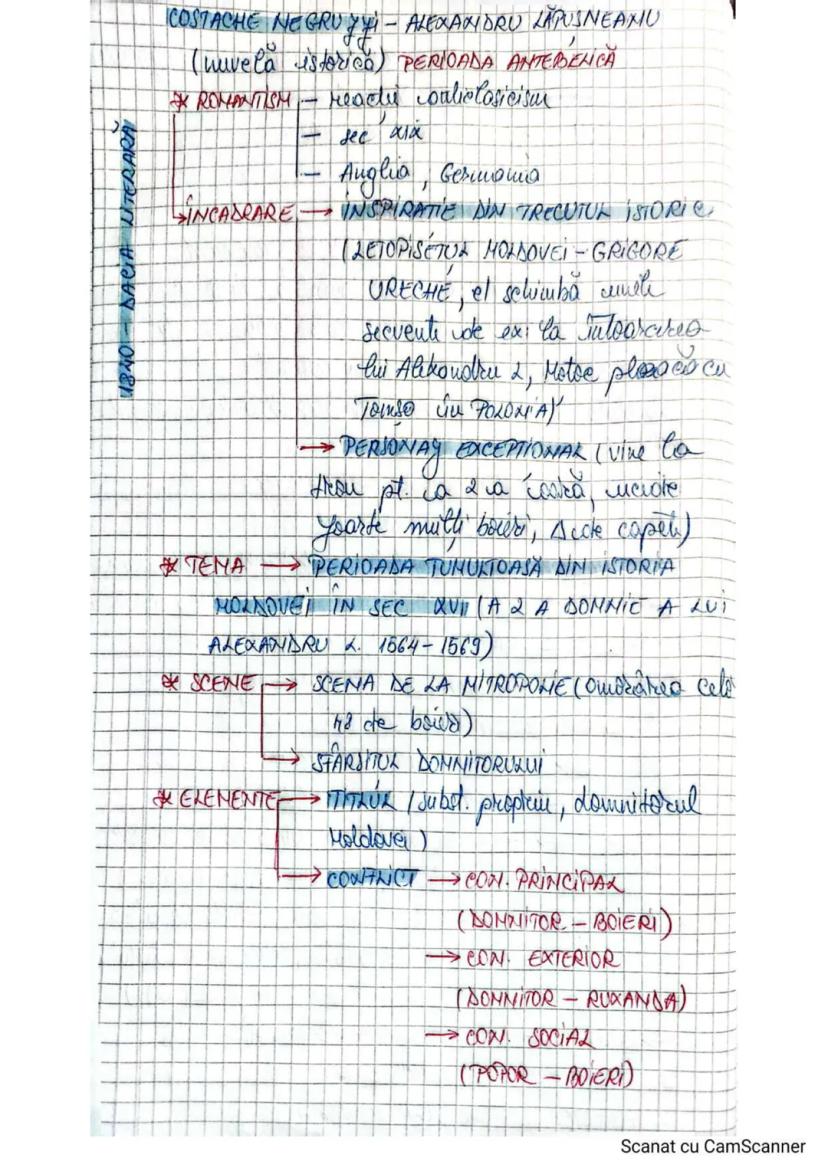 COSTACHE NEGRUZZI – ALEXANDRU LĂPUȘNEANU
(nuvelă istorică) PERIOADA ANTEBELICĂ
* ROMANTISM – reacție anticlasicism
– sec XIX
– Anglia, Germania
1840 – DACIA LITERARĂ
ÎNCADRARE → INSPIRATIE DIN TRECUTUL ISTORIC
(LETOPISETUL MOLDOVEI – GRIGORE
URECHE, el schimbă unele
secvente de ex: la întoarcerea
lui Alexandru L, Motoc pleacă cu
Tomșa în POLONIA)
→ PERSONAJ EXCEPTIONAL (vine la
tron pt. a 2 a oară, ucide
foarte mulți boieri,
* TEMA → PERIOADA TUMULTOASĂ DIN ISTORIA
MOLDOVEI ÎN SEC XVII (A 2 A DOMNIE A LUI
ALEXANDRU L. 1564 – 1569)
* SCENE → SCENA DE LA MITROPOLIE (omorârea celo
de boieri)
→ SFÂRȘITUL DOMNITORULUI
* ELEMENTE → TITLUL (subst. propriu, domnitorul
Moldovei)
→ CONFLICT → CON. PRINCIPAL
(DOMNITOR – BOIERI)
→ CON. EXTERIOR
(DOMNITOR – RUXANDA)
→ CON. SOCIAL
(POPOR – BOIERI)
Scanat cu CamScanner